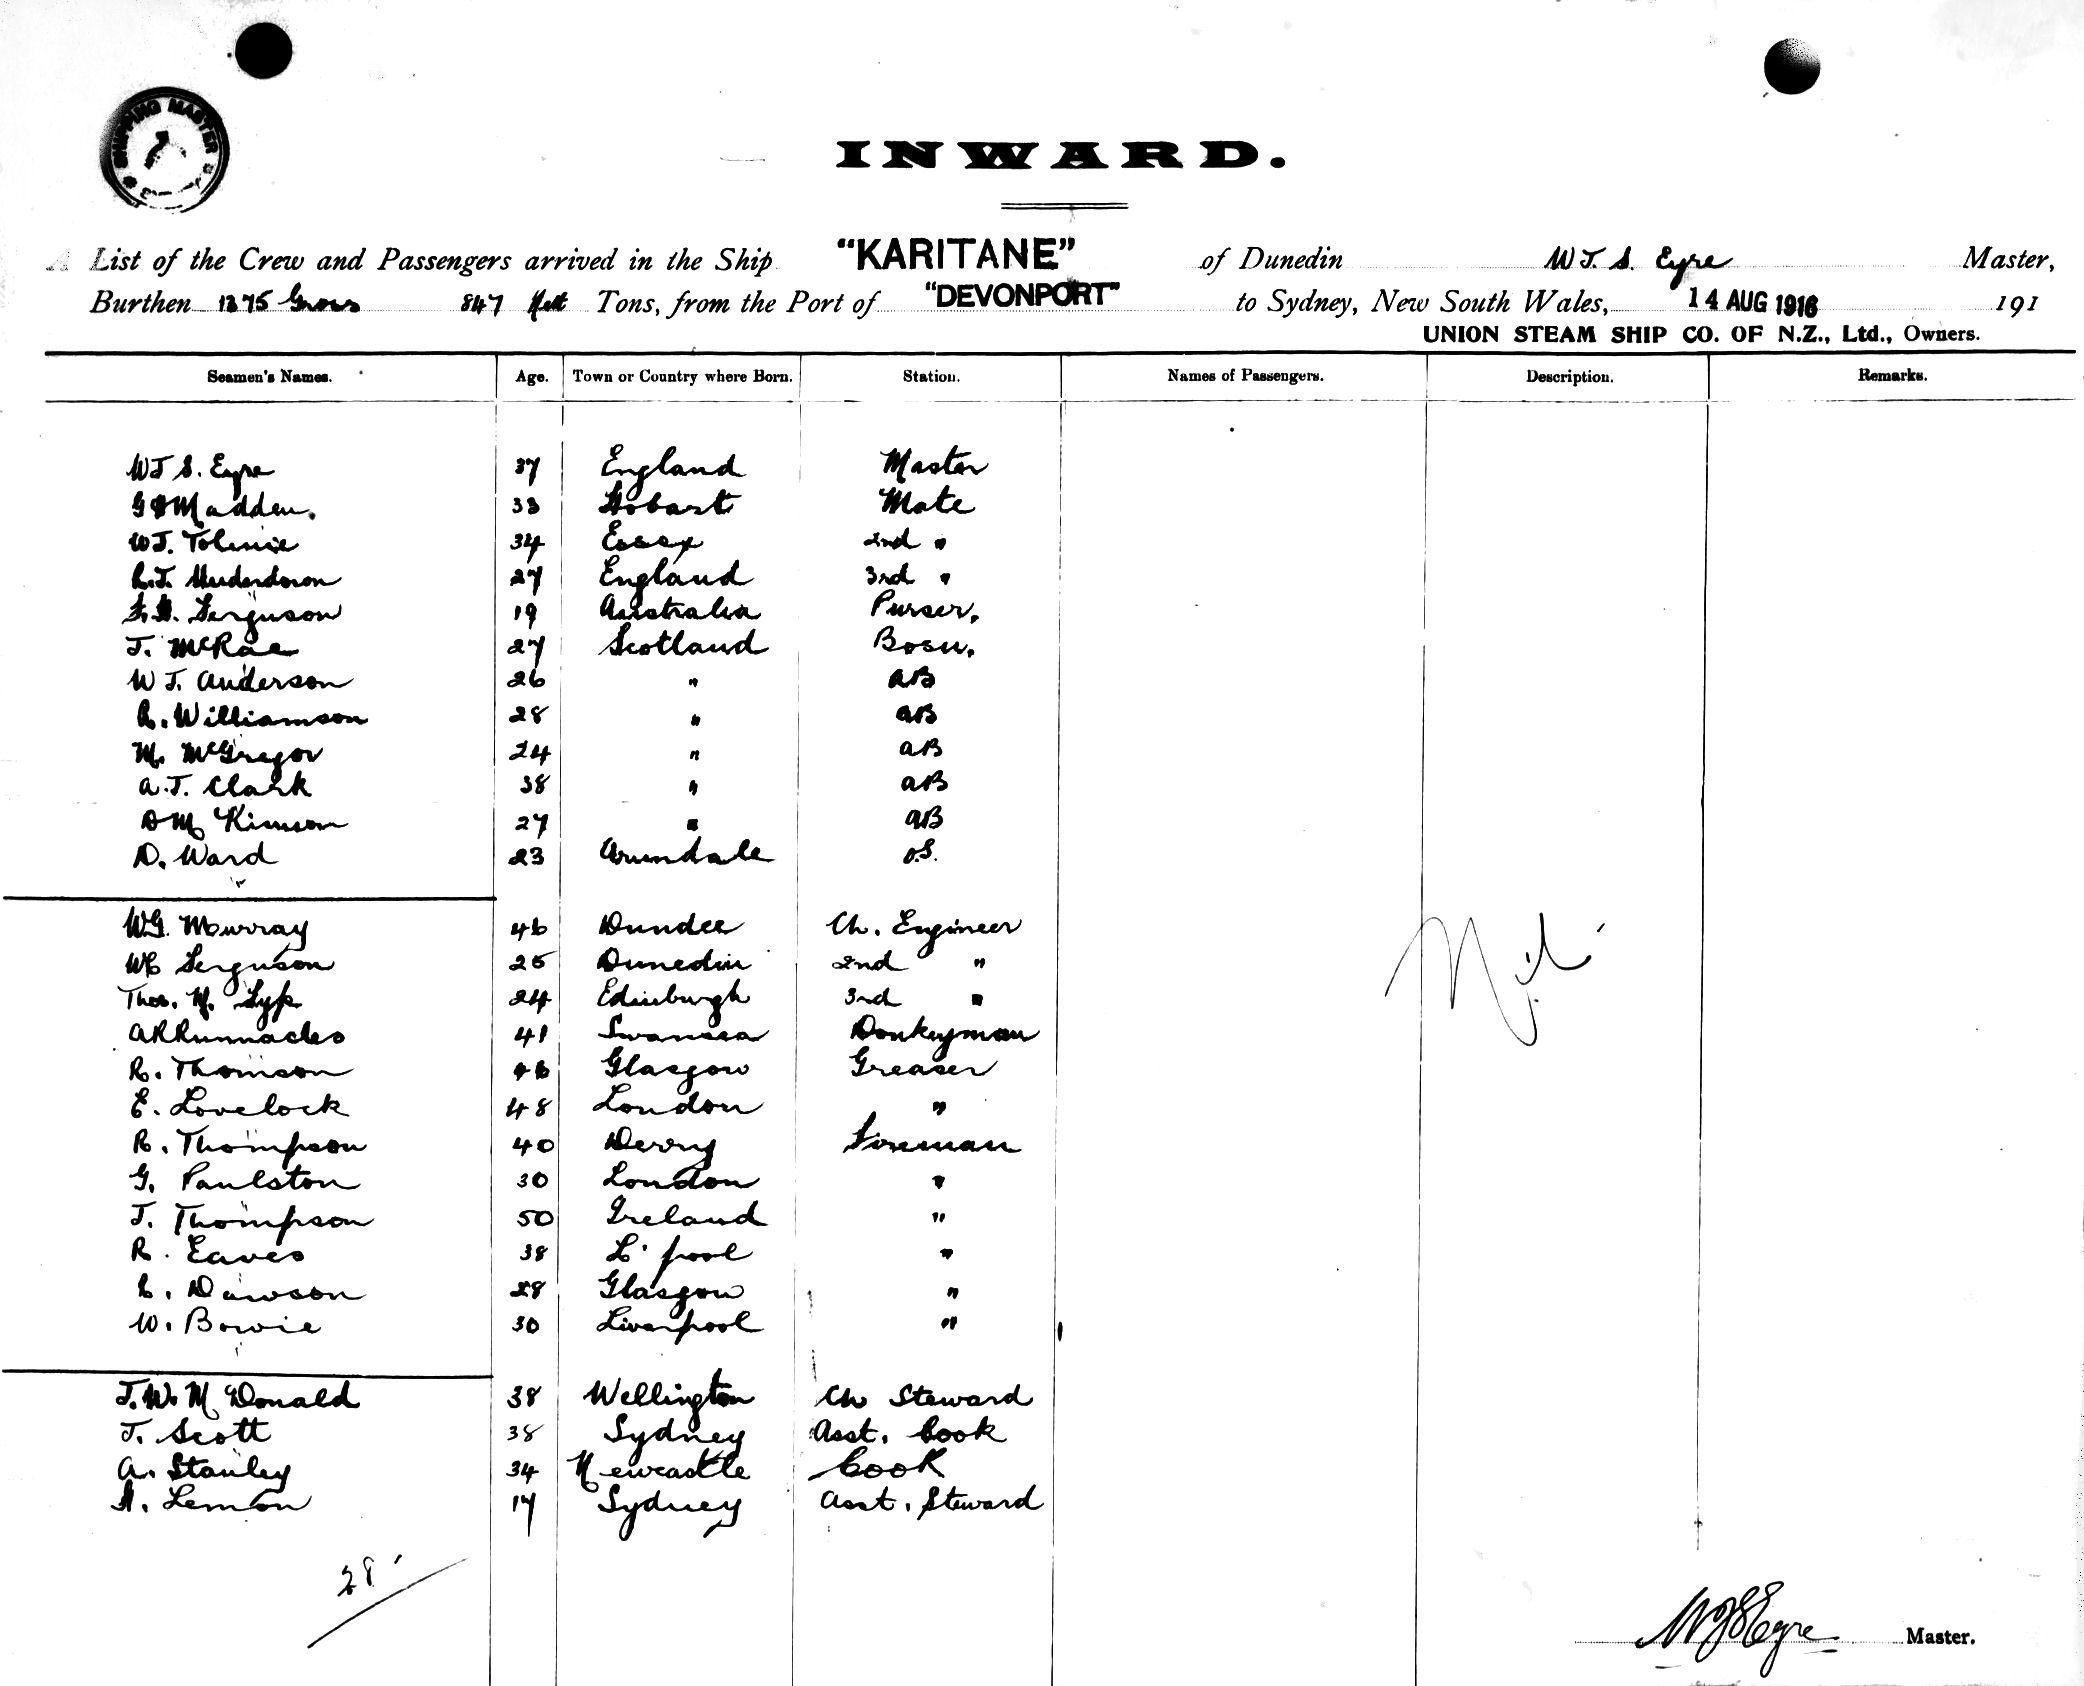 SHIPPING MASTER
INWARD.
A List of the Crew and Passengers arrived in the Ship "KARITANE" of Dunedin W J. S. Eyre Master,
Burthen 1375 Gross 847 Nett Tons, from the Port of "DEVONPORT" to Sydney, New South Wales, 14 AUG 1916 191
UNION STEAM SHIP CO. OF N.Z., Ltd., Owners.
Seamen's Names. Age. Town or Country where Born. Station. Names of Passengers. Description. Remarks.
WJ S. Eyre 37 England Master
Madden. 33 Hobart Mate
WJ. Tolmie 34 Essex 2nd "
27 England 3rd "
Ferguson 19 Australia Purser.
J. McRae 27 Scotland Bosu.
W J. Anderson 26 " AB
R. Williamson 28 " AB
M. McGregor 24 " AB
A.J. Clark 38 " AB
DM Kinson 27 " AB
D. Ward 23 Arundale O.S.
WG. Murray 46 Dundee Ch. Engineer
Ferguson 25 Dunedin 2nd "
Thos. 24 Edinburgh 3rd "
ARRunnacles 41 Swansea Donkeyman
R. Thomson 46 Glasgow Greaser
E. Lovelock 48 London "
R. Thompson 40 Derry Fireman
G. Paulston 30 London "
J. Thompson 50 Ireland "
R. Eaves 38 L'pool "
Dawson 28 Glasgow "
W. Bowie 30 Liverpool "
Nil
J. W. McDonald 38 Wellington Ch Steward
J. Scott 38 Sydney Asst. Cook
A. Stanley 34 Newcastle Cook
Lemon 17 Sydney Asst. Steward
28
WJSEyre Master.